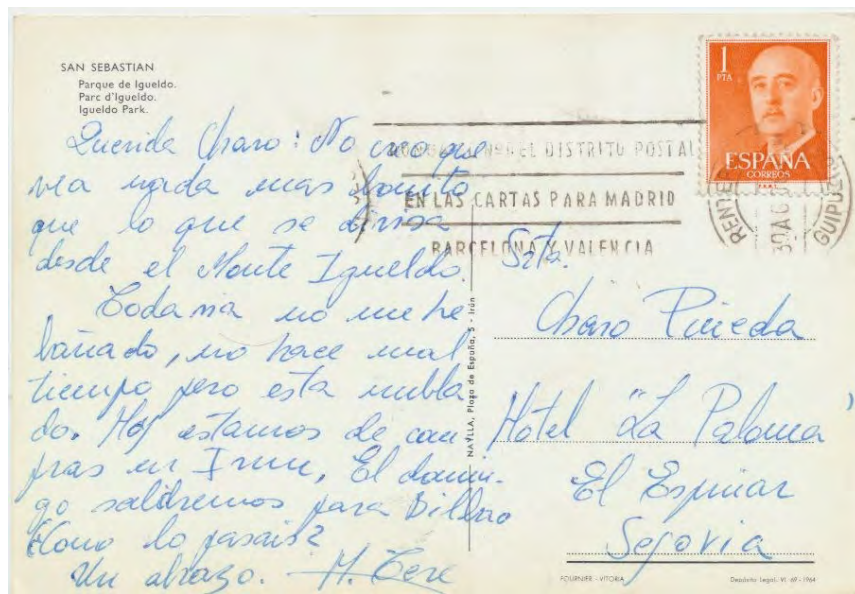 SAN SEBASTIAN
Parque de Igueldo.
Parc d'Igueldo.
Igueldo Park.
Querida Charo: No creo que
vea nada mas bonito
que lo que se divisa
desde el Monte Igueldo.
Todavia no me he
bañado, no hace mal
tiempo pero esta nubla
do. Hoy estamos de com
pras en Irun. El domin-
go saldremos para Bilbao
¿Como lo pasais?
Un abrazo. M. Tere
1
PTA
ESPAÑA
CORREOS
F.N.M.T.
EL DISTRITO POSTAL
EN LAS CARTAS PARA MADRID
BARCELONA Y VALENCIA
GUIPUZ
Srta.
Charo Pineda
Hotel "La Paloma
El Espinar
Segovia
NAYLLA, Plaza de España, 5 - Irún
FOURNIER - VITORIA
Depósito Legal. VI. 69 - 1964